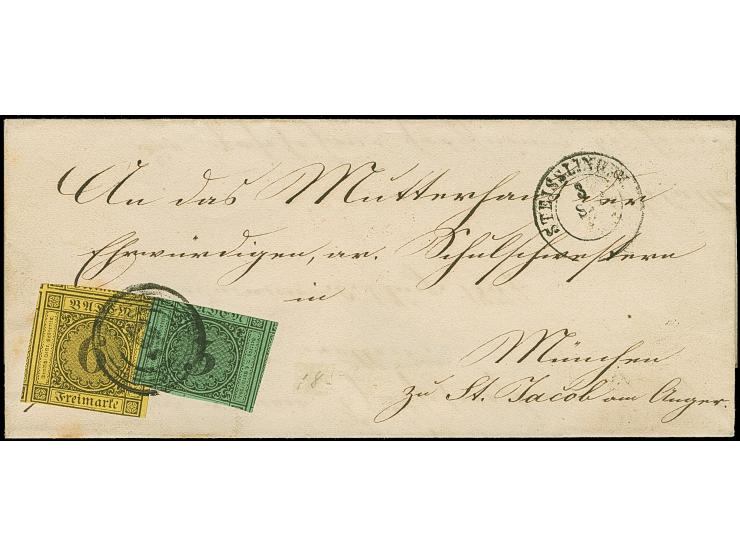 An das Mutterhaus der
STEISSLINGEN
Ehrwürdigen, ar. Schulschwestern
in
BADEN
6
Freimarke
3
München
185
zu St. Jacob am Anger.